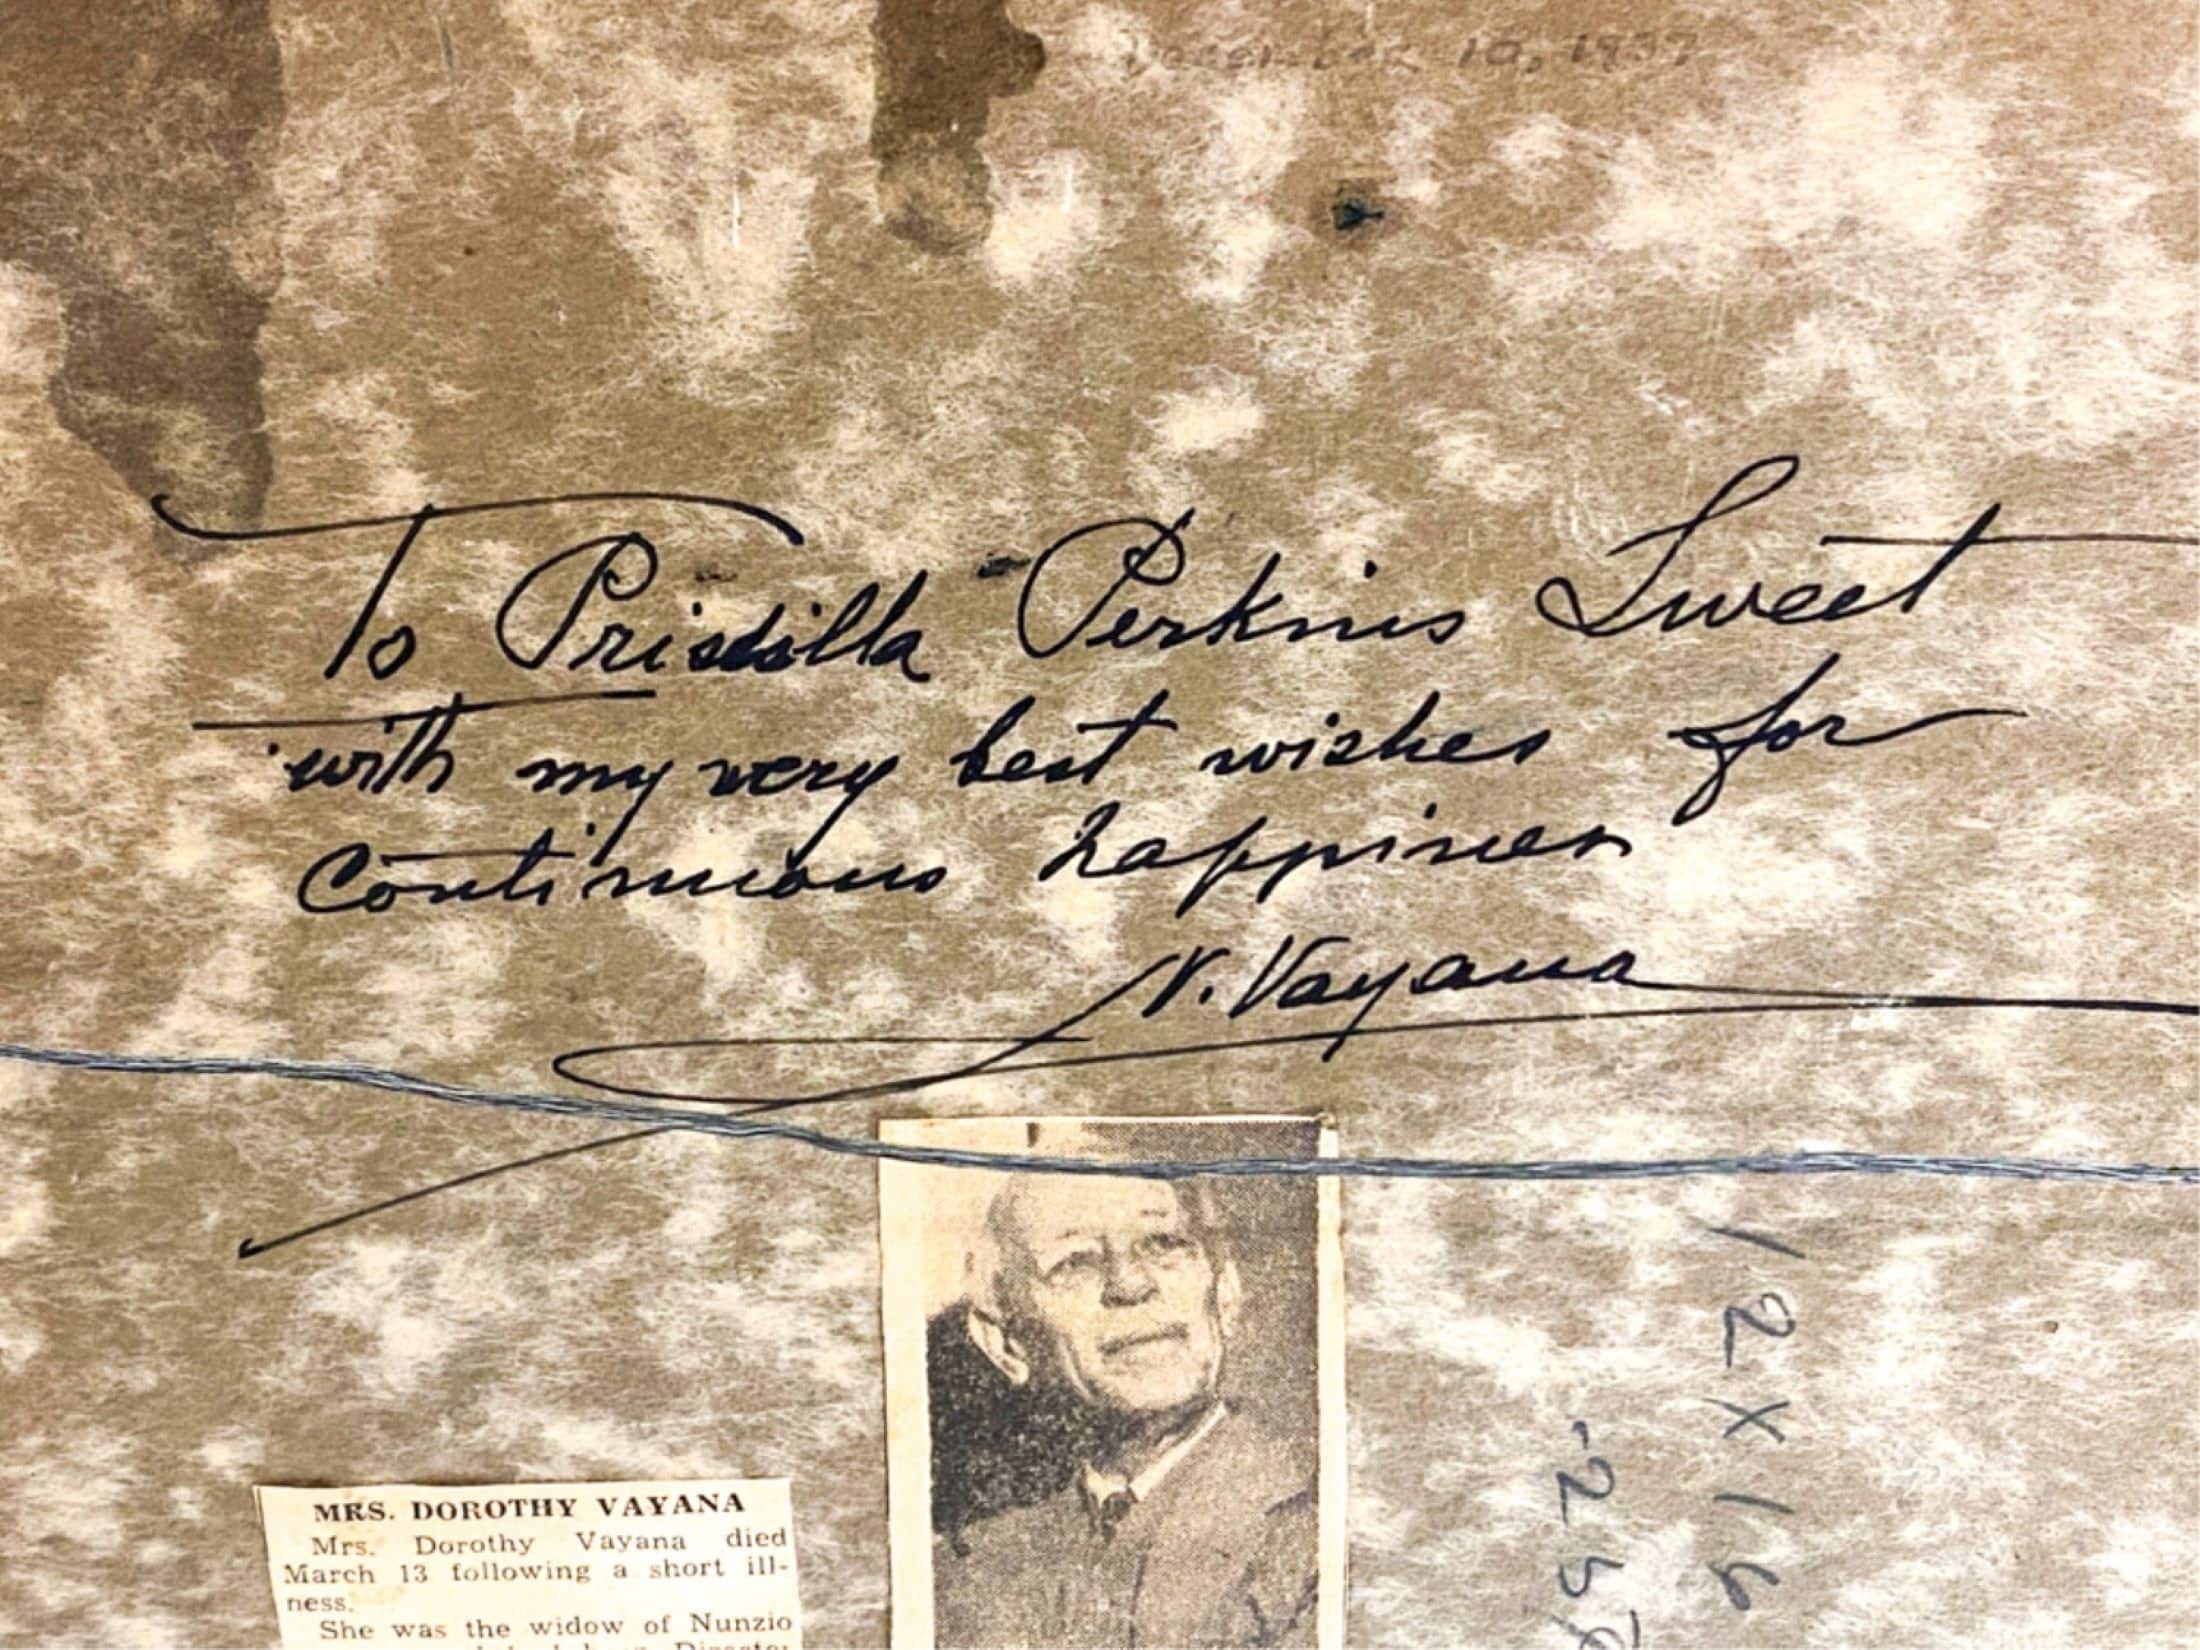 December 10, 1937
To Priscilla Perkins Sweet
with my very best wishes for
continuous happiness
N. Vayana
MRS. DOROTHY VAYANA
Mrs. Dorothy Vayana died
March 13 following a short ill-
ness.
She was the widow of Nunzio
12 X 16